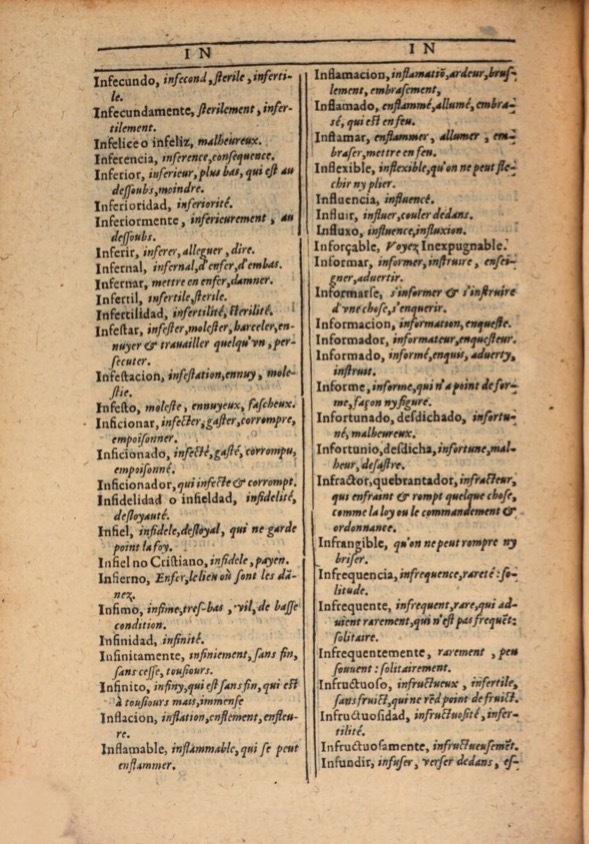 IN
Infecundo, infecond, sterile, inferti-
le.
Infecundamente, sterilement, infer-
tilement.
Infelice o infeliz, malheureux.
Inferencia, inference, consequence.
Inferior, inferieur, plus bas, qui est au
dessoubs, moindre.
Inferioridad, inferiorité.
Inferiormente, inferieurement, au
dessoubs.
Inferir, inferer, alleguer, dire.
Infernal, infernal, d'enfer, d'embas.
Infernar, mettre en enfer, damner.
Infertil, infertile, sterile.
Infertilidad, infertilité, sterilité.
Infestar, infester, molester, harceler, en-
nuyer & travailler quelqu'vn, per-
secuter.
Infestacion, infestation, ennuy, mole-
stie.
Infesto, moleste, ennuyeux, fascheux.
Inficionar, infecter, gaster, corrompre,
empoisonner.
Inficionado, infecté, gasté, corrompu,
empoisonné.
Inficionador, qui infecte & corrompt.
Infidelidad o infieldad, infidelité,
desloyauté.
Infiel, infidele, desloyal, qui ne garde
point la foy.
Infiel no Cristiano, infidele, payen.
Infierno, Enfer, le lieu où sont les dã-
nez.
Infimo, infime, tres-bas, vil, de basse
condition.
Infinidad, infinité.
Infinitamente, infiniement, sans fin,
sans cesse, tousiours.
Infinito, infiny, qui est sans fin, qui est
à tousiours mais, immense
Inflacion, inflation, enflement, enfleu-
re.
Inflamable, inflammable, qui se peut
enflammer.
IN
Inflamacion, inflamatiõ, ardeur, brus-
lement, embrasement,
Inflamado, enflammé, allumé, embra-
sé, qui est en feu.
Inflamar, enflammer, allumer, em-
braser, mettre en feu.
Inflexible, inflexible, qu'on ne peut fle-
chir ny plier.
Influencia, influencé.
Influir, influer, couler dedans.
Influxo, influence, influxion.
Inforçable, Voyez Inexpugnable.
Informar, informer, instruire, ensei-
gner, advertir.
Informarse, s'informer & s'instruire
d'vne chose, s'enquerir.
Informacion, information, enqueste.
Informador, informateur, enquesteur.
Informado, informé, enquis, adverty,
instruit.
Informe, informe, qui n'a point de for-
me, façon ny figure.
Infortunado, desdichado, infortu-
né, malheureux.
Infortunio, desdicha, infortune, mal-
heur, desastre.
Infractor, quebrantador, infracteur,
qui enfraint & rompt quelque chose,
comme la loy ou le commandement &
ordonnance.
Infrangible, qu'on ne peut rompre ny
briser.
Infrequencia, infrequence, rareté: so-
litude.
Infrequente, infrequent, rare, qui ad-
uient rarement, qui n'est pas frequẽt:
solitaire.
Infrequentemente, rarement, peu
souuent: solitairement.
Infructuoso, infructueux, infertile,
sans fruict, qui ne rẽd point de fruict.
Infructuosidad, infructuosité, infer-
tilité.
Infructuosamente, infructueusemẽt.
Infundir, infuser, verser dedans, es-